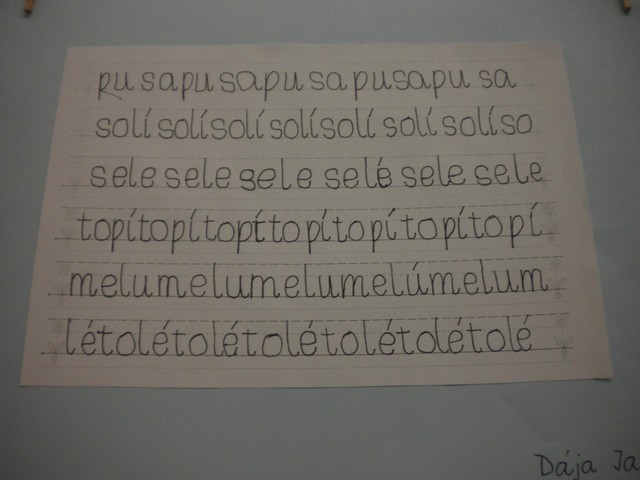 pusapusapusapusapusa
solísolísolísolísolísolísolíso
sele sele sele selé sele sele
topítopítopítopítopítopítopí
melumelumelumelúmelum
létolétolétolétolétolétolé
Dája Ja